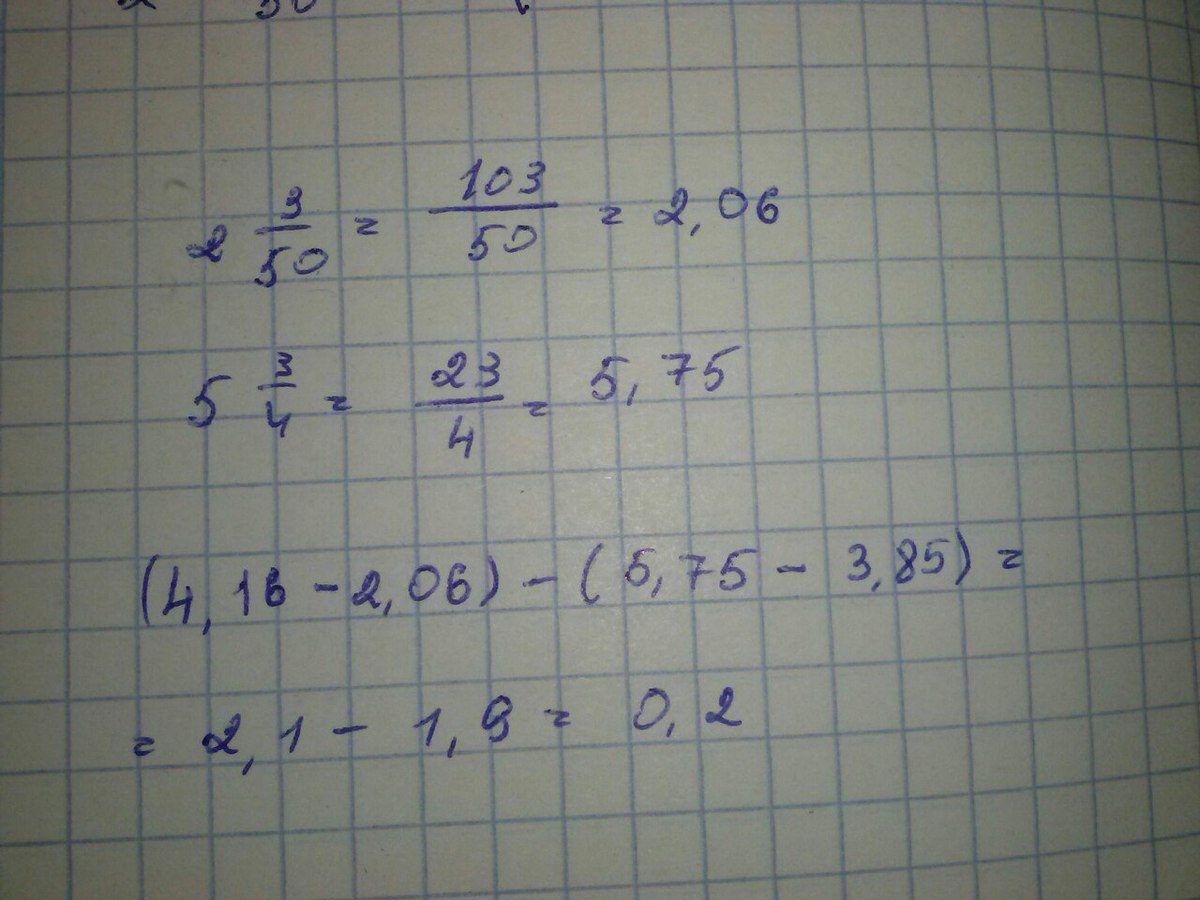 2 3/50 = 103/50 = 2,06
5 3/4 = 23/4 = 5,75
(4,16 - 2,06) - (5,75 - 3,85) =
= 2,1 - 1,9 = 0,2